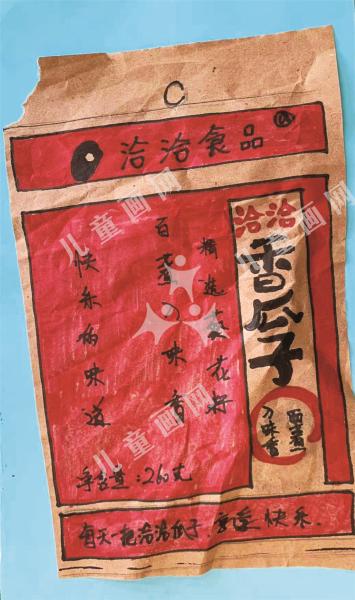 C
洽洽食品
洽洽
香瓜子
百煮
入味香
精选葵花籽
百煮入味香
快乐的味道
净含量:260克
每天一把洽洽瓜子,享 快乐.
儿童画网